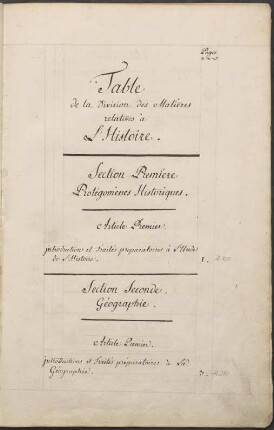 Pages
Table
de la Division des Matières
relatives à
L'Histoire.
Section Première
Prolégomènes Historiques.
Article Premier
introduction et Traités préparatoires à l'Etude
de l'Histoire. 1.
Section Seconde.
Géographie.
Article Premier.
introductions et Traités préparatoires à la
Géographie.